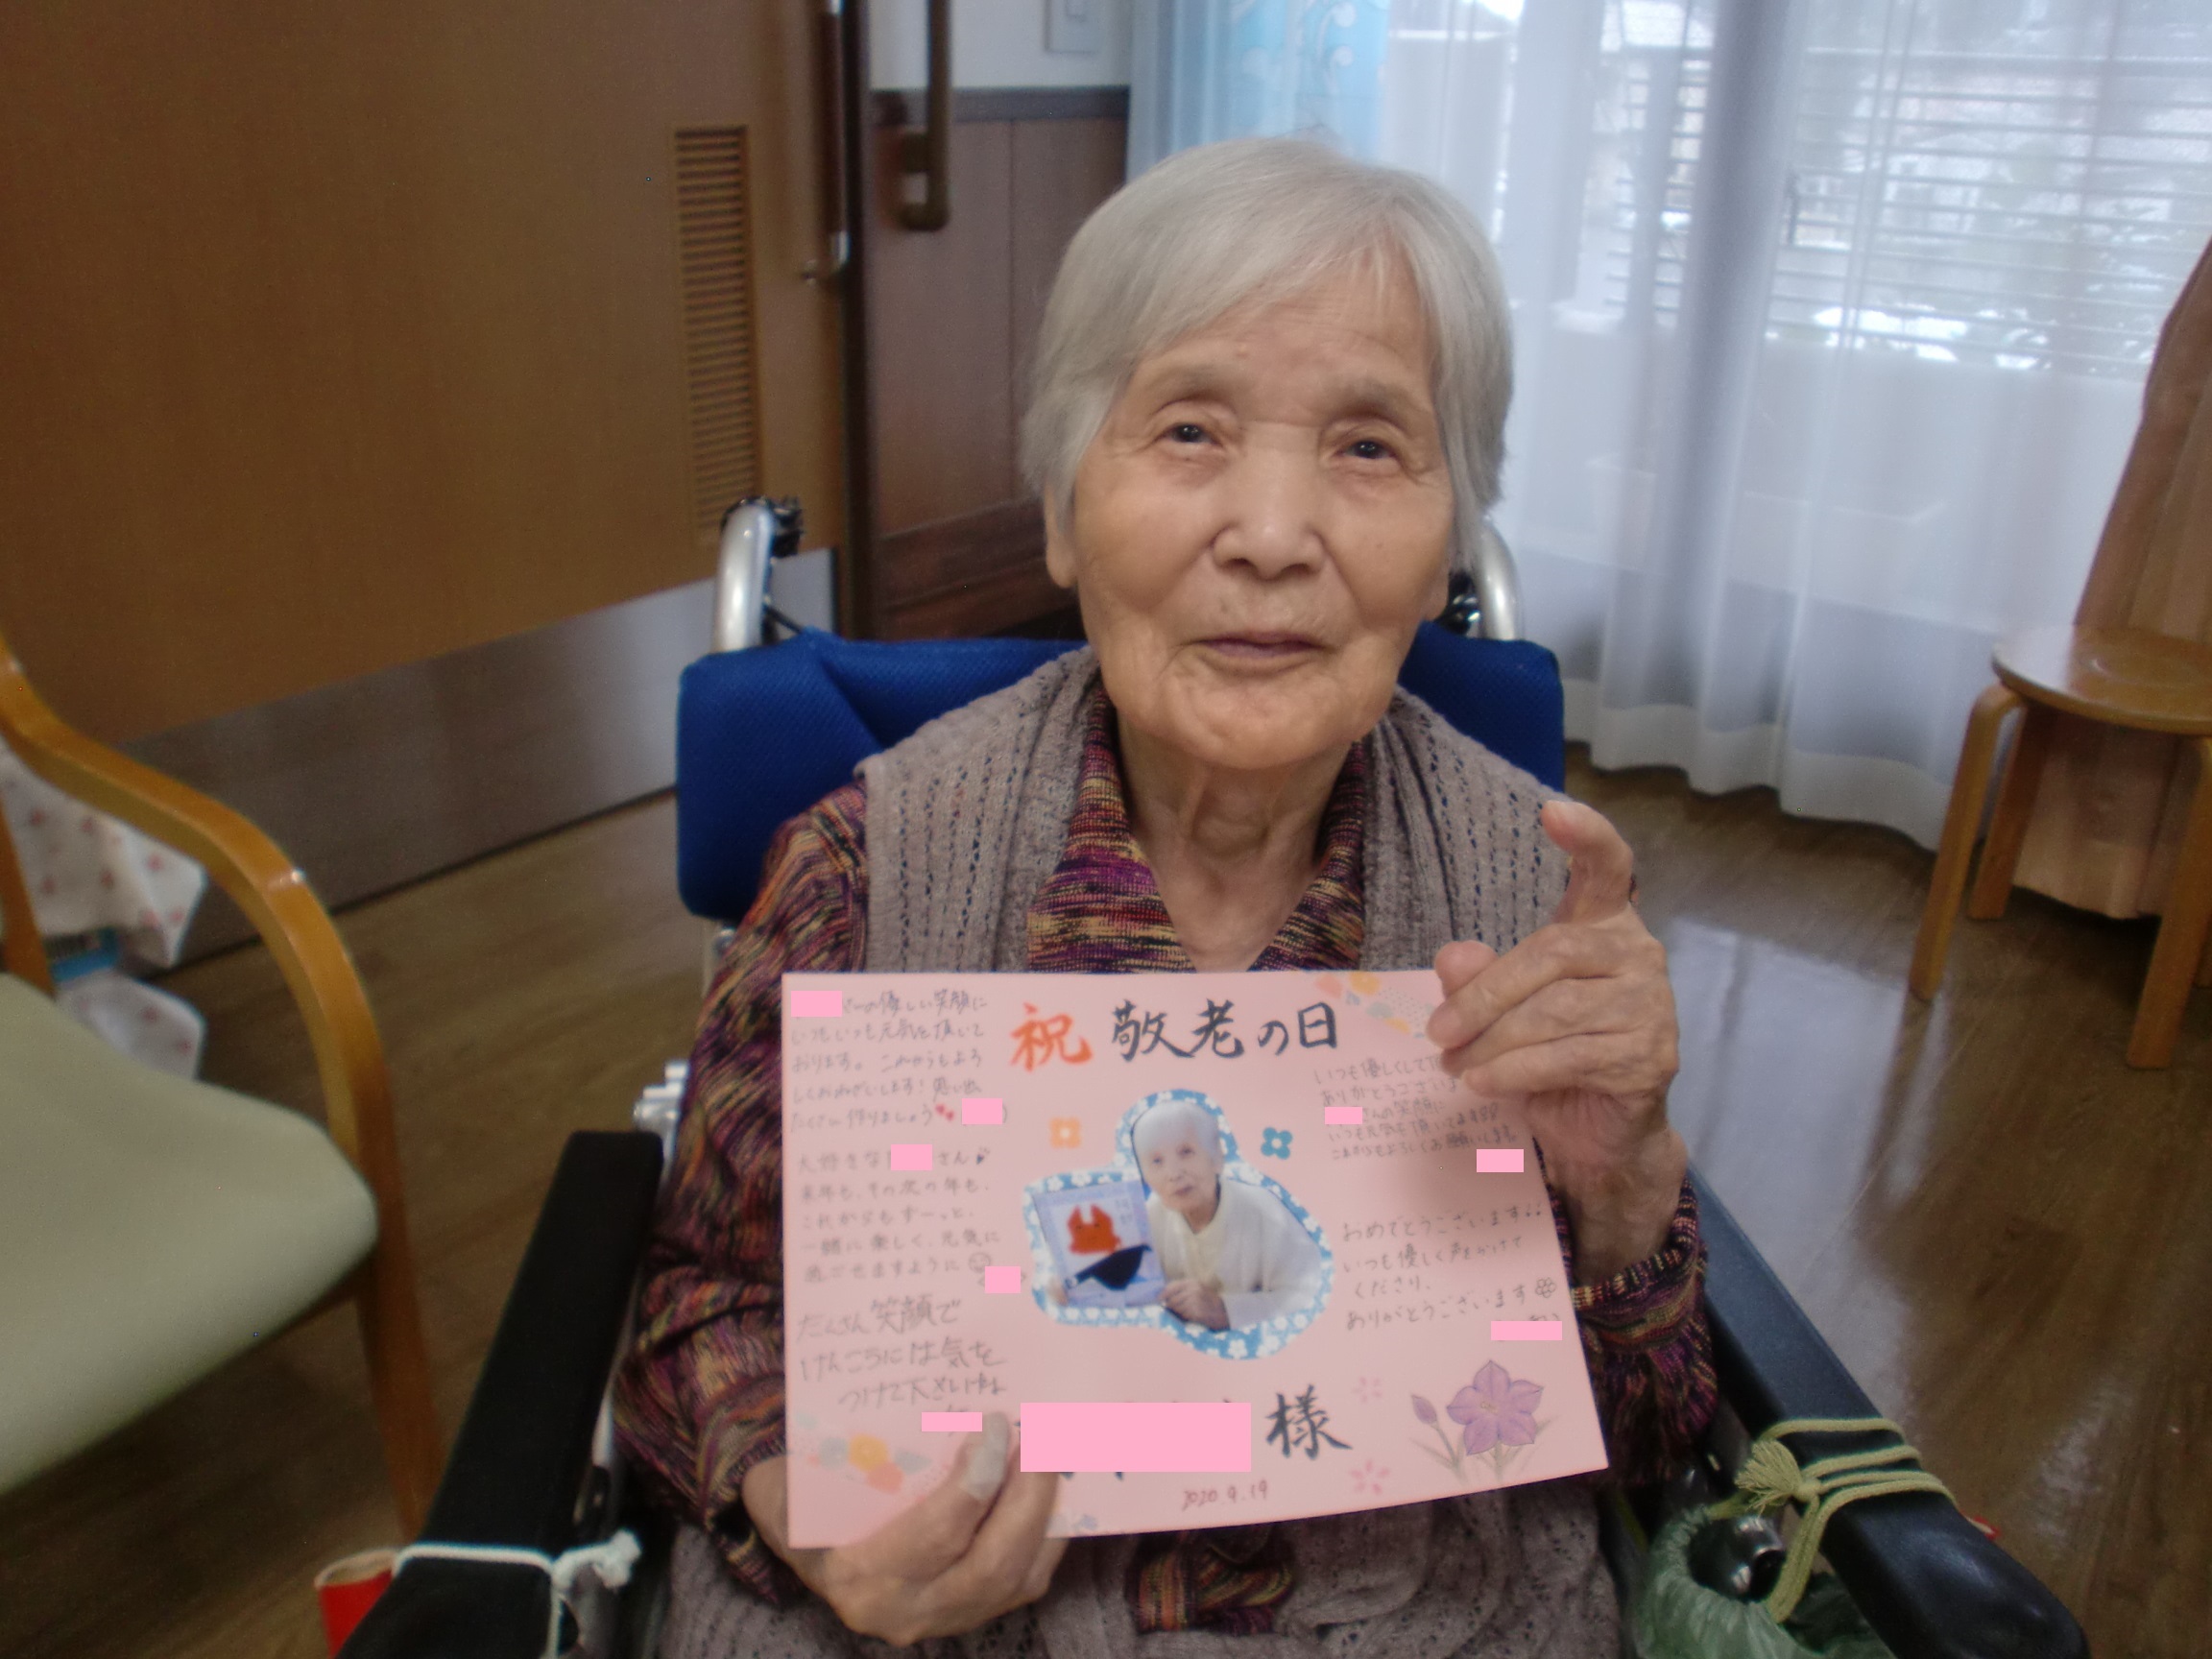 祝 敬老の日
の優しい笑顔に
いつもいつも元気を頂いて
おります。これからもよろ
しくおねがいします！思い出
たくさん作りましょう
大好きな さん
来年も、その次の年も、
これからもずーっと、
一緒に楽しく、元気に
過ごせますように
たくさん笑顔で
けんこうには気を
つけて下さいね
いつも優しくして
ありがとうござい
さんの笑顔に
いつも元気を頂いてます
これからもよろしくお願いします
おめでとうございます
いつも優しく声をかけて
くださり、
ありがとうございます
様
2020.9.19